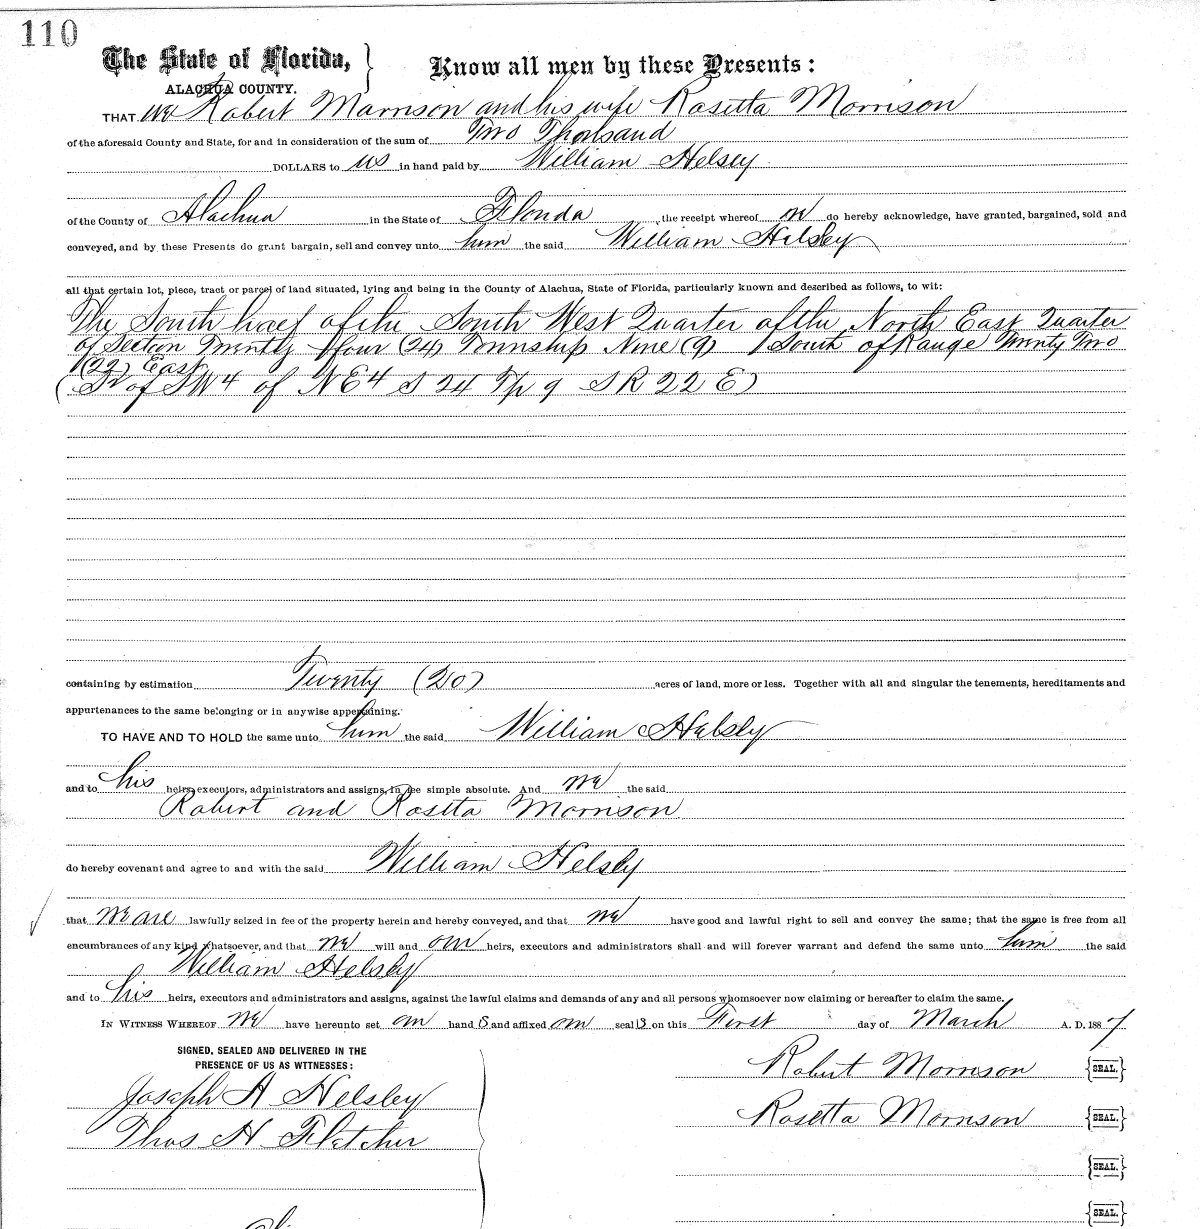 110
The State of Florida, } Know all men by these Presents:
ALACHUA COUNTY.
THAT we Robert Morrison and his wife Rosetta Morrison
of the aforesaid County and State, for and in consideration of the sum of Two Thousand
DOLLARS to us in hand paid by William Helsey
of the County of Alachua in the State of Florida, the receipt whereof we do hereby acknowledge, have granted, bargained, sold and
conveyed, and by these Presents do grant bargain, sell and convey unto him the said William Helsby
all that certain lot, piece, tract or parcel of land situated, lying and being in the County of Alachua, State of Florida, particularly known and described as follows, to wit:
The South half of the South West Quarter of the North East Quarter
of Section Twenty four (24) Township Nine (9) South of Range Twenty Two
(22) East
(S2 of SW4 of NE4 S 24 Tp 9 S R 22 E)
containing by estimation Twenty (20) acres of land, more or less. Together with all and singular the tenements, hereditaments and
appurtenances to the same belonging or in anywise appertaining.
TO HAVE AND TO HOLD the same unto him the said William Helsby
and to his heirs, executors, administrators and assigns, in fee simple absolute. And we the said
Robert and Rosetta Morrison
do hereby covenant and agree to and with the said William Helsby
that we are lawfully seized in fee of the property herein and hereby conveyed, and that we have good and lawful right to sell and convey the same; that the same is free from all
encumbrances of any kind whatsoever, and that we will and our heirs, executors and administrators shall and will forever warrant and defend the same unto him the said
William Helsby
and to his heirs, executors and administrators and assigns, against the lawful claims and demands of any and all persons whomsoever now claiming or hereafter to claim the same.
IN WITNESS WHEREOF we have hereunto set our hand s and affixed our seal s on this First day of March A. D. 188 7
SIGNED, SEALED AND DELIVERED IN THE
PRESENCE OF US AS WITNESSES:
Robert Morrison {SEAL.}
Joseph A Helsby
Rosetta Morrison {SEAL.}
Thos H Fletcher
{SEAL.}
{SEAL.}